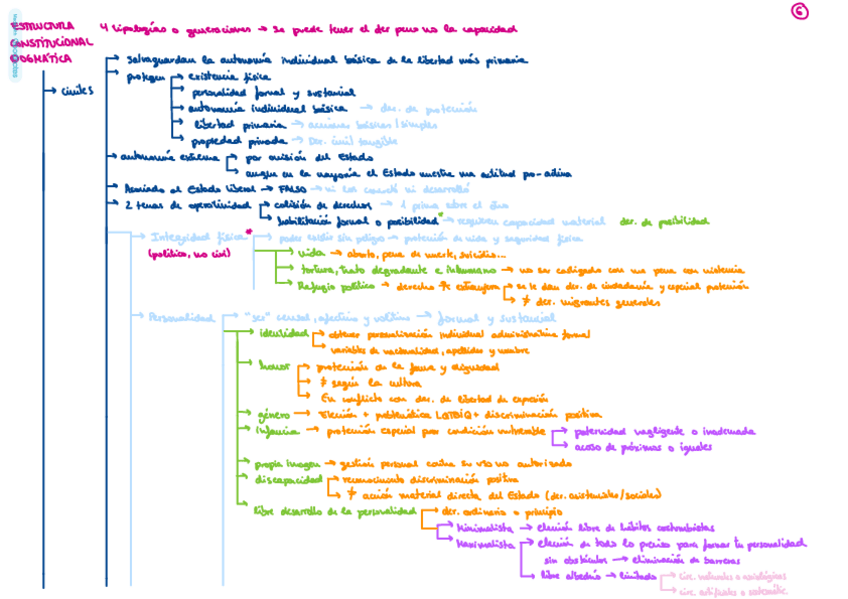 ESTRUCTURA 4 tipologías o generaciones → se puede tener el der pero no la capacidad 6
CONSTITUCIONAL
DOGMÁTICA
→ civiles
→ salvaguardan la autonomía individual básica de la libertad más primaria
→ protegen → existencia física
→ personalidad formal y sustancial
→ autonomía individual básica → der. de protección
→ libertad primaria → acciones básicas/simples
→ propiedad privada → Der. civil tangible
→ autonomía extrema → por omisión del Estado
→ aunque en la mayoría el Estado muestre una actitud pro-activa
→ Asociado al Estado liberal → FALSO → ni los concibió ni desarrolló
→ 2 temas de operatividad → colisión de derechos → 1 prima sobre el otro
→ habilitación formal o posibilidad* → requieren capacidad material der. de posibilidad
→ Integridad física* → poder existir sin peligro → protección de vida y seguridad física
(político, no civil) → vida → aborto, pena de muerte, suicidio...
→ tortura, trato degradante e inhumano → no ser castigado con una pena con
→ Refugio político → derecho extranjero → se le dan der. de ciudadanía y especial protección
→ ≠ der. migrantes generales
→ Personalidad → "ser" causal, afectivo y volitivo → formal y sustancial
→ identidad → obtener personalización individual administrativa formal
→ variables de nacionalidad, apellidos y nombre
→ honor → protección de la fama y dignidad
→ ≠ según la cultura
→ En conflicto con der. de libertad de expresión
→ género → Elección + problemática LGTBIQ+ discriminación positiva
→ infancia → protección especial por condición vulnerable → paternidad negligente o inadecuada
→ acoso de próximos o iguales
→ propia imagen → gestión personal contra su uso no autorizado
→ discapacidad → reconocimiento discriminación positiva
→ ≠ acción material directa del Estado (der. asistenciales/sociales)
→ libre desarrollo de la personalidad → der. ordinario o principio
→ Minimalista → elección libre de hábitos costumbristas
→ Maximalista → elección de todo lo preciso para formar tu personalidad
sin obstáculos → eliminación de barreras
→ libre albedrío → limitado → circ. naturales o axiológicas
→ circ. artificiales o